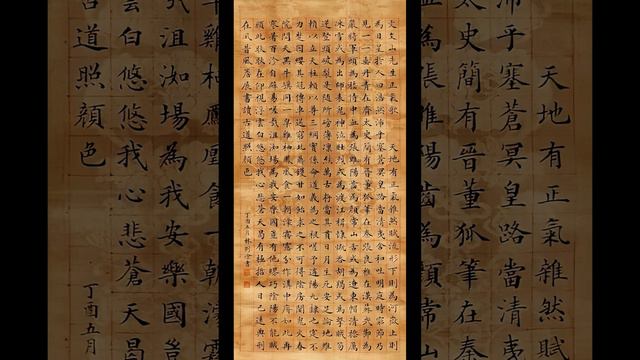 天地有正氣雜然賦
沛乎塞蒼冥皇路當清夷
太史簡有晉董狐筆在秦
為張睢陽齒為顏常山
文文山先生正氣歌 天地有正氣雜然賦流形下則為河嶽上則
為日星於人曰浩然沛乎塞蒼冥皇路當清夷含和吐明庭時窮節乃
見一一垂丹青在齊太史簡有晉董狐筆在秦張良椎在漢蘇武節為
嚴將軍頭為嵇侍中血為張睢陽齒為顏常山舌或為遼東帽清操厲
冰雪或為出師表鬼神泣壯烈或為渡江楫慷慨吞胡羯或為擊賊笏
逆豎頭破裂是氣所磅礡凜烈萬古存當其貫日月生死安足論地維
賴以立天柱賴以尊三綱實係命道義為之根嗟予遘陽九隸也實不
力楚囚纓其冠傳車送窮北鼎鑊甘如飴求之不可得陰房闃鬼火春
院閟天黑牛驥同一皁雞棲鳳凰食一朝濛霧露分作溝中瘠如此再
寒暑百沴自辟易嗟哉沮洳場為我安樂國豈有他繆巧陰陽不能賊
顧此耿耿在仰視浮雲白悠悠我心悲蒼天曷有極哲人日已遠典刑
在夙昔風簷展書讀古道照顏色
丁酉五月林則徐書
雞棲鳳凰食一朝濛霧
哉沮洳場為我安樂國豈
白悠悠我心悲蒼天曷
古道照顏色
丁酉五月